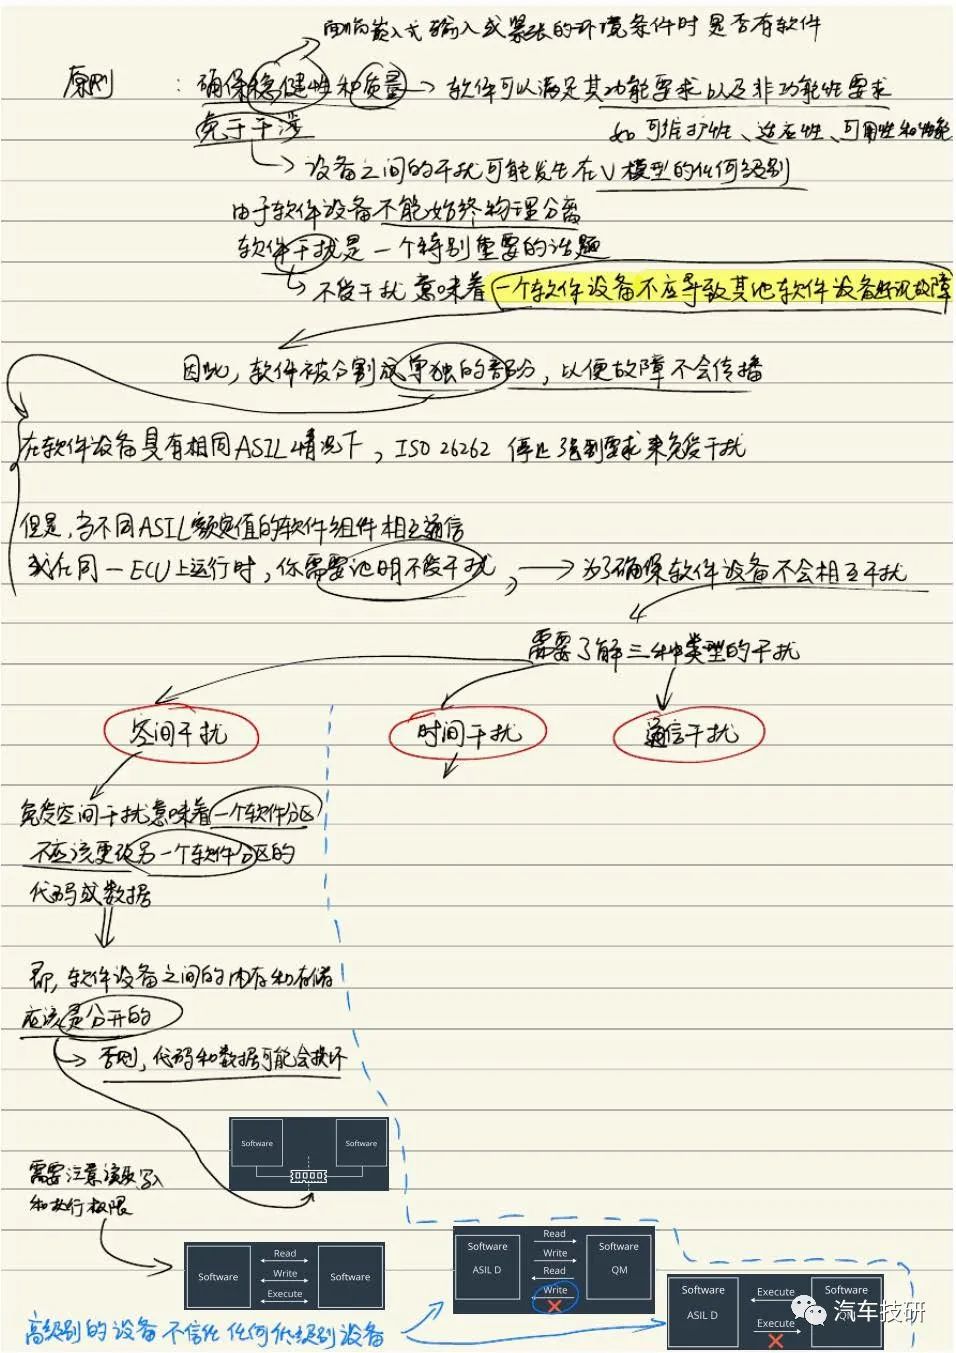 面临嵌入式输入或紧张的环境条件时是否有软件
原则 : 确保稳健性和质量 → 软件可以满足其功能要求以及非功能性要求
免于干涉 如可维护性、适应性、可用性和性能
设备之间的干扰可能发生在V模型的任何级别
由于软件设备不能始终物理分离
软件干扰是一个特别重要的话题
不受干扰意味着 一个软件设备不应导致其他软件设备出现故障
因此，软件被分割成单独的部分，以便故障不会传播
在软件设备具有相同ASIL情况下，ISO 26262 停止强制要求来免受干扰
但是，当不同ASIL额定值的软件组件相互通信
或在同一ECU上运行时，你需要证明不受干扰， → 为了确保软件设备不会相互干扰
需要了解三种类型的干扰
空间干扰 时间干扰 通信干扰
免受空间干扰意味着一个软件分区
不应该更改另一个软件分区的
代码或数据
即，软件设备之间的内存和存储
应该是分开的
否则，代码和数据可能会损坏
Software Software
需要注意读取写入
和执行权限
Software Read Write Execute Software
Software ASIL D Read Write Read Write Software QM
Software ASIL D Execute Execute Software QM
汽车技研
高级别的设备不信任任何低级别设备